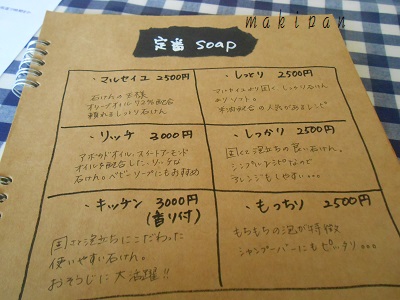 makipan
定番 soap
・マルセイユ 2500円
石けんの王様
オリーブオイル72%配合
頼れるしっかり石けん
・しっとり 2500円
マルセイユより固く しっかり石けん
よりソフト。
米油配合の人気があるレシピ
・リッチ 3000円
アボカドオイル、スイートアーモンド
オイルを配合したリッチな
石けん。ベビーソープにもおすすめ
・しっかり 2500円
固くて泡立ちの良い石けん。
シンプルレシピなので
アレンジもしやすい…
・キッチン 3000円
(香り付)
固さと泡立ちにこだわった
使いやすい石けん。
おそうじに大活躍!!
・もっちり 2500円
もちもちの泡が特徴
シャンプーバーにもピッタリ…